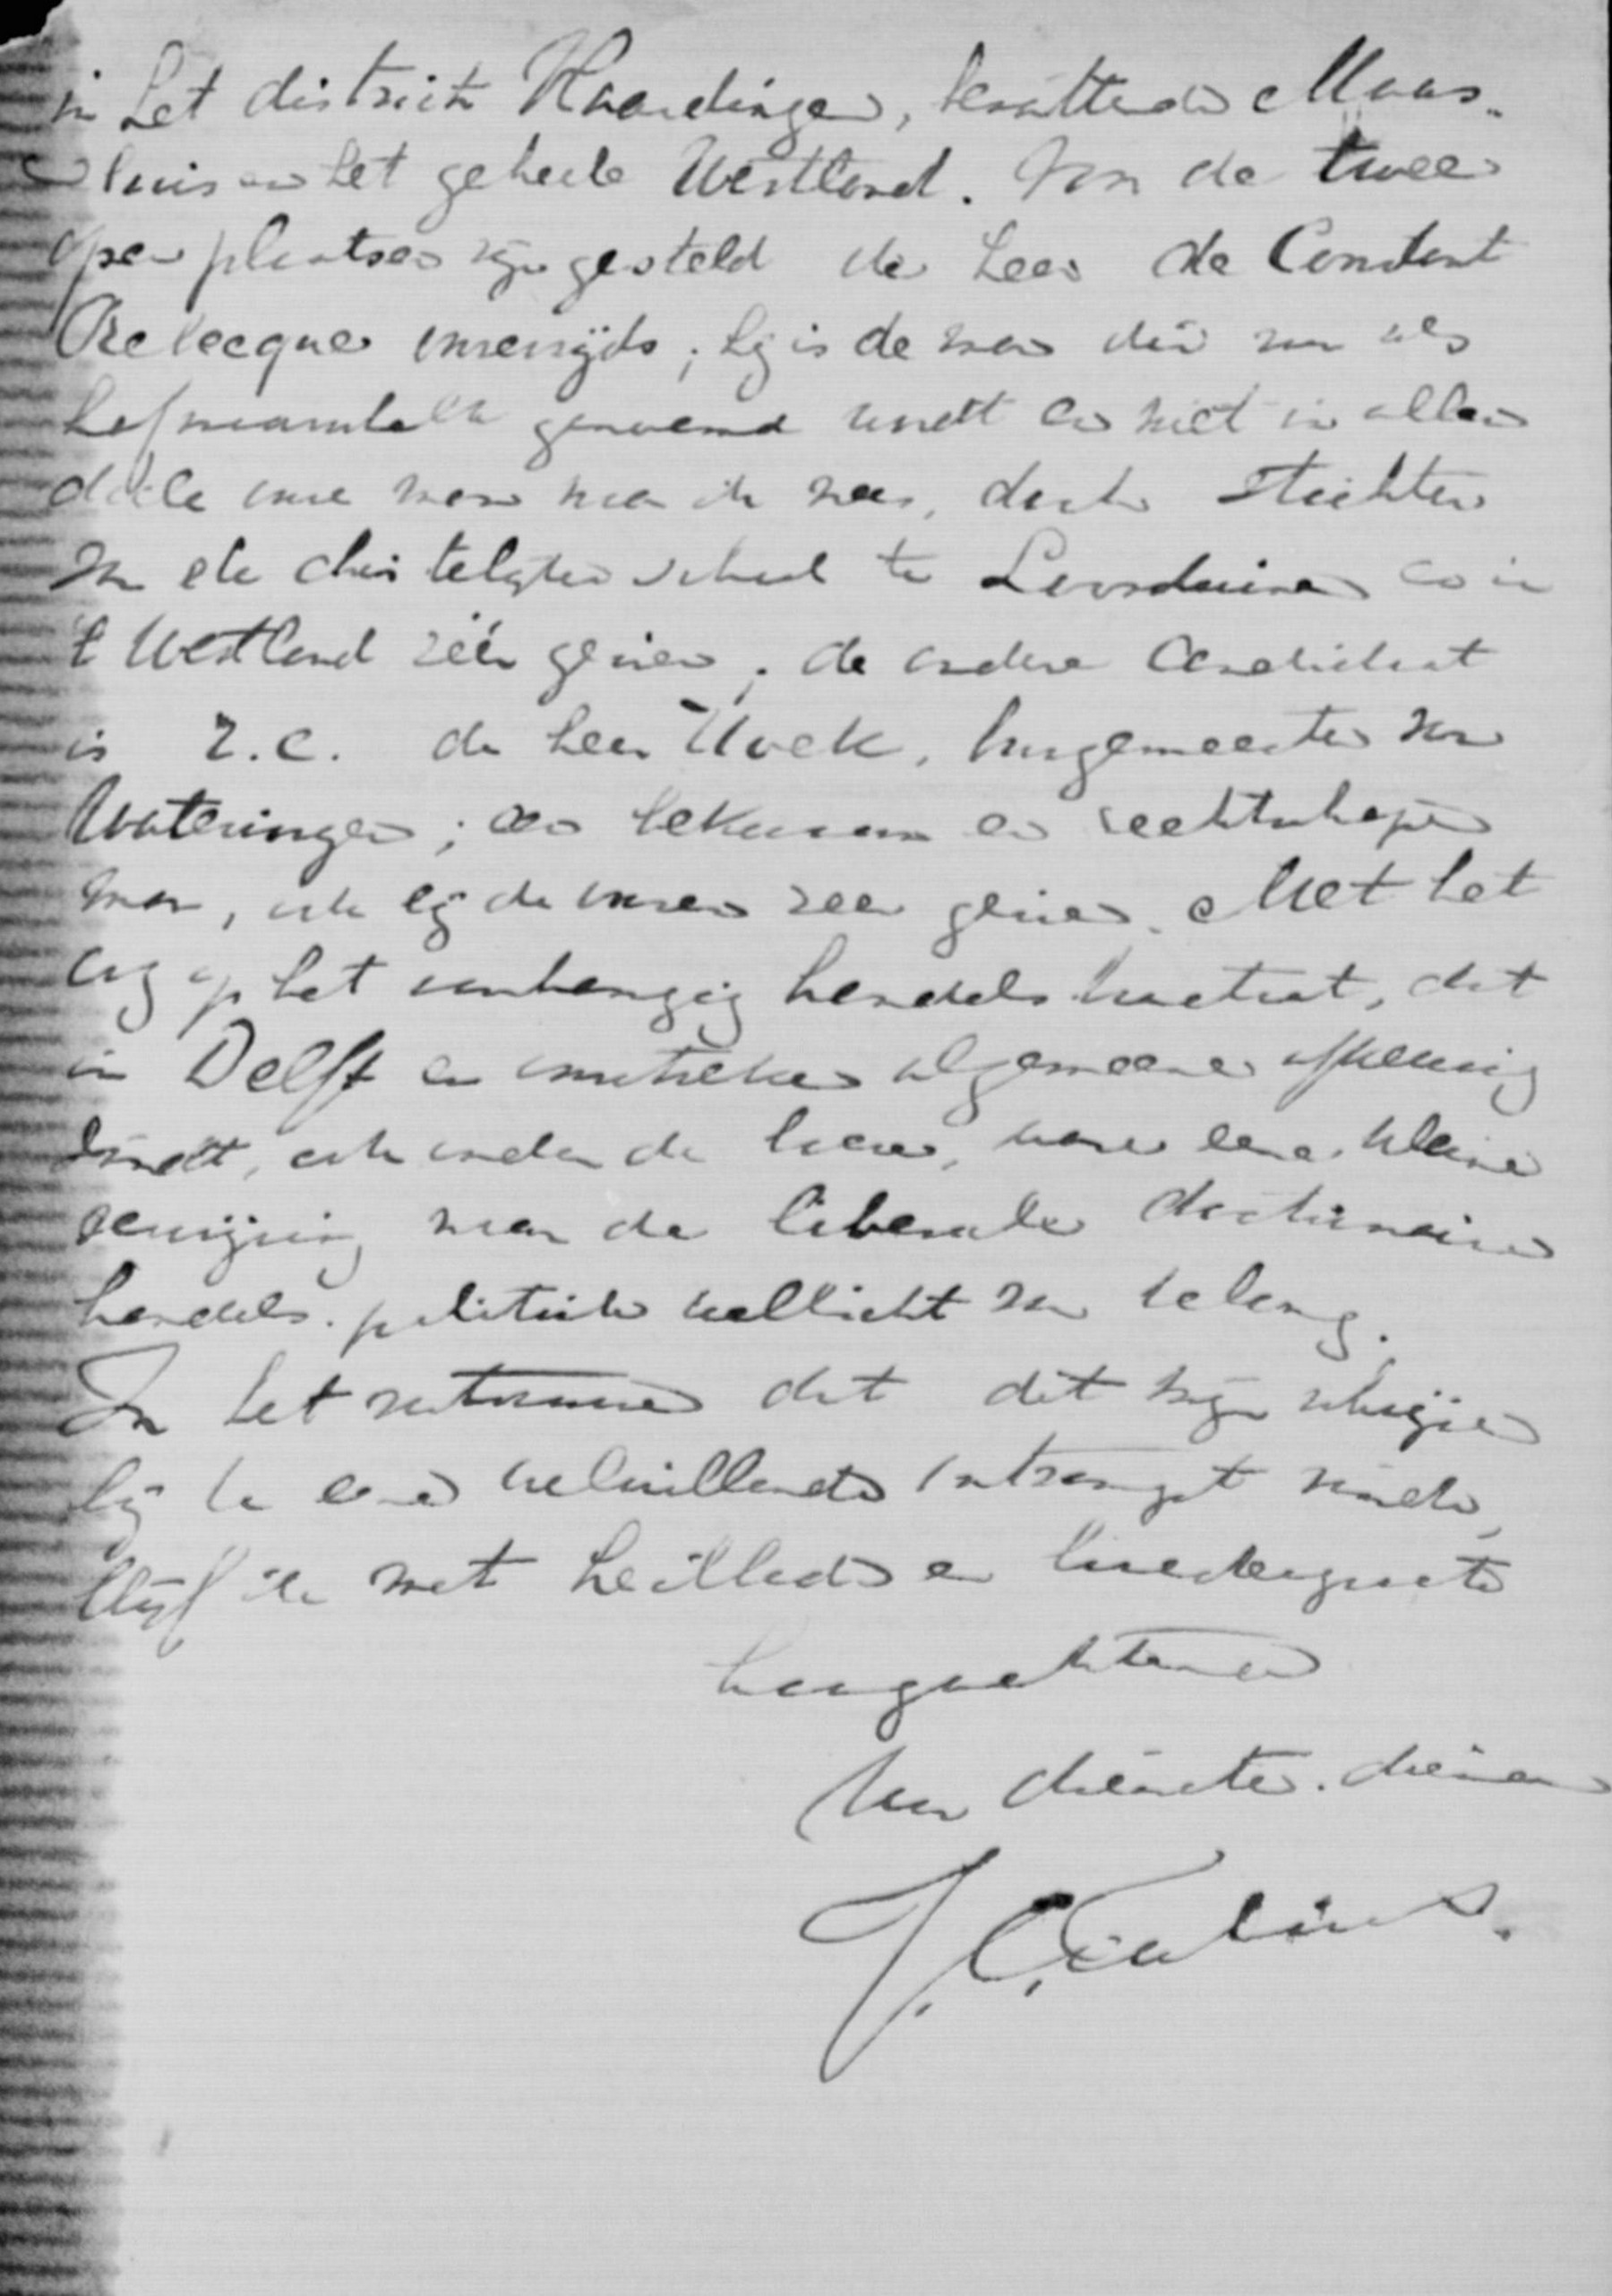 in het district Vlaardingen, bevattende Maas-
sluis en het geheele Westland. Voor de twee
open plaatsen zijn gesteld de heer de Constant
Rebecque onzerzijds; hij is de man die nu als
hofmaarschalk genoemd wordt en niet in allen
deele onze man naar ik meen, doch stichter
van de christelijke school te Loosduinen en in
't Westland zéér gezien; de andere candidaat
is r.c. de heer Hoek, burgemeester van
Wateringen; een bekwaam en rechtschapen
man, ook bij de onzen zeer gezien. Met het
oog op het aanhangig handelstractaat, dat
in Delft en omstreken algemeene afkeuring
vindt, ook onder de boeren, ware eene kleine
verwijzing naar de liberale doctrinaire
handels-politiek wellicht van belang.
In het vertrouwen dat dit mijn schrijven
bij U eene welwillende ontvangst vinde,
blijf ik met heilbede en broedergroete
hoogachtend
Uw dienstw. dienaar